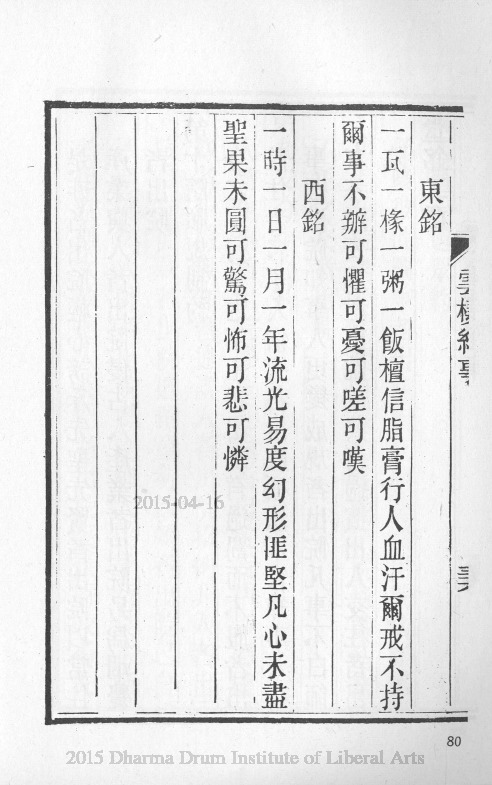 東銘
一瓦一椽一粥一飯檀信脂膏行人血汗爾戒不持
爾事不辦可懼可憂可嗟可嘆
西銘
一時一日一月一年流光易度幻形匪堅凡心未盡
聖果未圓可驚可怖可悲可憐
80
2015-04-16
2015 Dharma Drum Institute of Liberal Arts